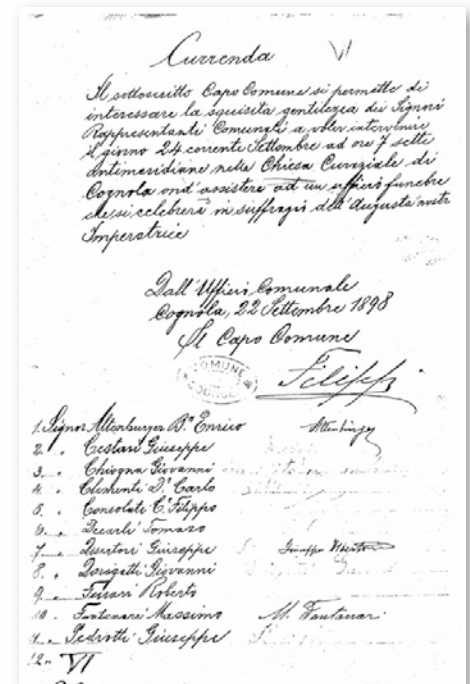 Currenda VI
Il sottoscritto Capo Comune si permette di
interessare la squisita gentilezza dei Signori
Rappresentanti Comunali a voler intervenire
il giorno 24 corrente Settembre ad ore 7 sette
antimeridiane nella Chiesa Curaziale di
Cognola ond'assistere ad un ufficio funebre
che si celebrerà in suffragio dell'Augusta nostra
Imperatrice
Dall'Ufficio Comunale
Cognola, 22 Settembre 1898
Il Capo Comune
COMUNE
Filippi
1. Signor Altenburger Bne Enrico Altenburger
2. " Cestari Giuseppe
3. " Chiogna Giovanni
4. " Clementi Dr Carlo
5. " Consolati C. Filippo
6. " Decarli Tomaso
7. " Giuseppe Giuseppe
8. " Dorigatti Giovanni
9. " Ferrari Roberto
10. " Fontanari Massimo M. Fontanari
11. " Pedrotti Giuseppe
12. " VI